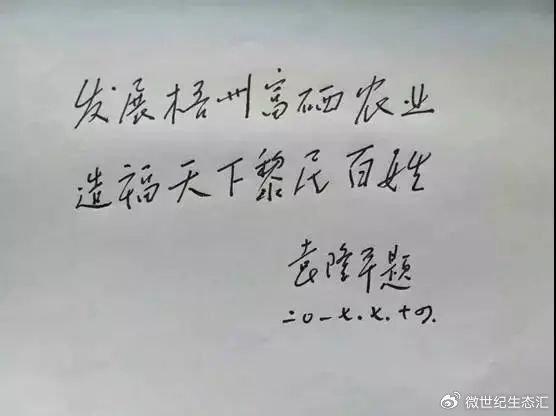 发展梧州富硒农业
造福天下黎民百姓
袁隆平题
二〇一七.七.十四.
微世纪生态汇